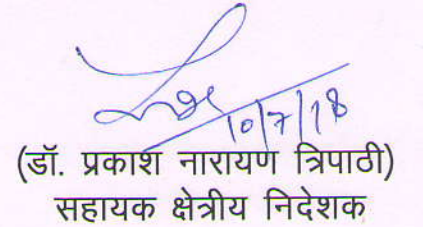 10/7/18
(डॉ. प्रकाश नारायण त्रिपाठी)
सहायक क्षेत्रीय निदेशक